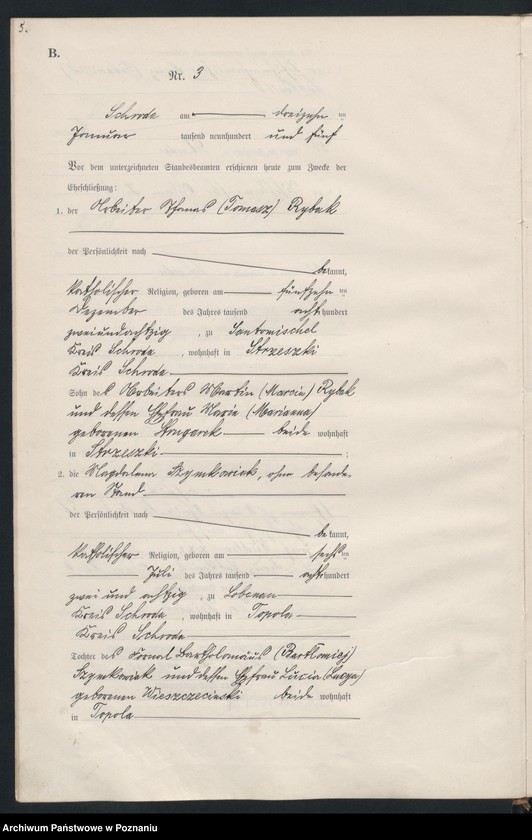 5.
B.
Nr. 3
Schroda am dreizehn ten
Januar tausend neunhundert und fünf
Vor dem unterzeichneten Standesbeamten erschienen heute zum Zwecke der
Eheschließung:
1. der Arbeiter Thomas (Tomasz) Rybak
der Persönlichkeit nach
bekannt,
katholischer Religion, geboren am fünfzehn ten
Dezember des Jahres tausend acht hundert
zweiundachtzig , zu Santomischel
Kreis Schroda , wohnhaft in Strzeszki
Kreis Schroda
Sohn des Arbeiters Martin (Marcin) Rybak
und dessen Ehefrau Marie (Marianna)
geborenen beide wohnhaft
in Strzeszki ;
2. die Magdalena Szymkowiak, ohne besonde-
ren Stand
der Persönlichkeit nach
bekannt,
katholischer Religion, geboren am sechs ten
Juli des Jahres tausend acht hundert
zwei und achtzig , zu
Kreis Schroda , wohnhaft in Topola
Kreis Schroda
Tochter des Kornal Bartholomäus (Bartłomiej)
Szymkowiak und dessen Ehefrau Lucia (Łucya)
geborenen beide wohnhaft
in Topola
Archiwum Państwowe w Poznaniu